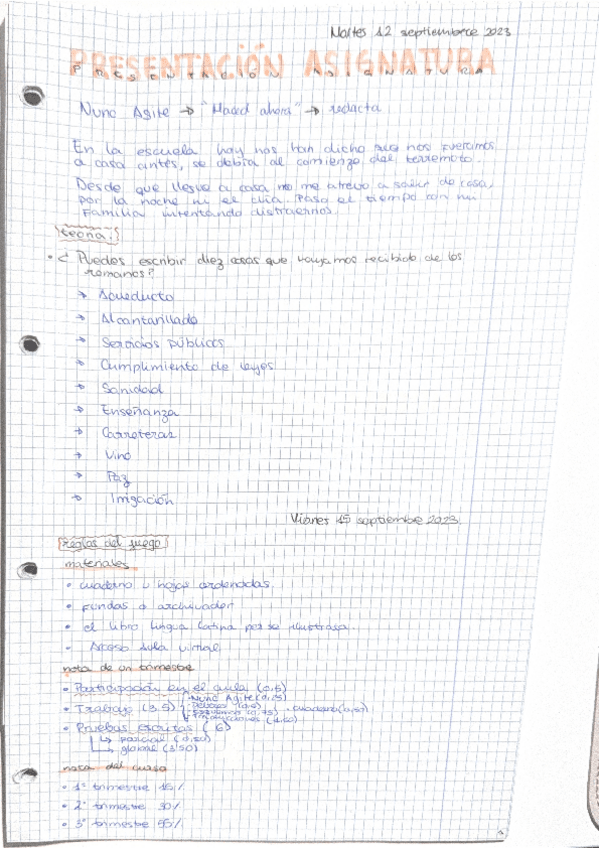 Martes 12 septiembrece 2023
PRESENTACIÓN ASIGNATURA
PRESENTACIÓN ASIGNATURA
Nunc Agite → "Madrid ahora" → redacta
En la escuela hoy nos han dicho que nos fueramos
a casa antes, se debía al comienzo del terremoto.
Desde que llegue a casa no me atrevo a salir de casa,
por la noche ni el día. Paso el tiempo con mi
familia intentando distraernos.
teoría.
• ¿ Puedes escribir diez cosas que hayamos recibido de los
romanos?
→ Acueducto
→ Alcantarillado
→ Servicios públicos
→ Cumplimiento de leyes
→ Sanidad
→ Enseñanza
→ Carreteras
→ Vino
→ Paz
→ Irrigación
Viernes 15 septiembre 2023
reglas del juego
materiales
• cuaderno u hojas ordenadas.
• Fundas o archivador
• el libro lingua latina per se illustrata.
• Acceso Aula virtual.
nota de un trimestre
• Participación en el aula (0,5)
• Trabajo (3,5) Nunc Agite
cuaderno
Traducciones
• Pruebas escritas (6)
↳ parcial
↳ global (3'50)
nota del curso
• 1º trimestre 15%
• 2º trimestre 30%
• 3º trimestre 55%